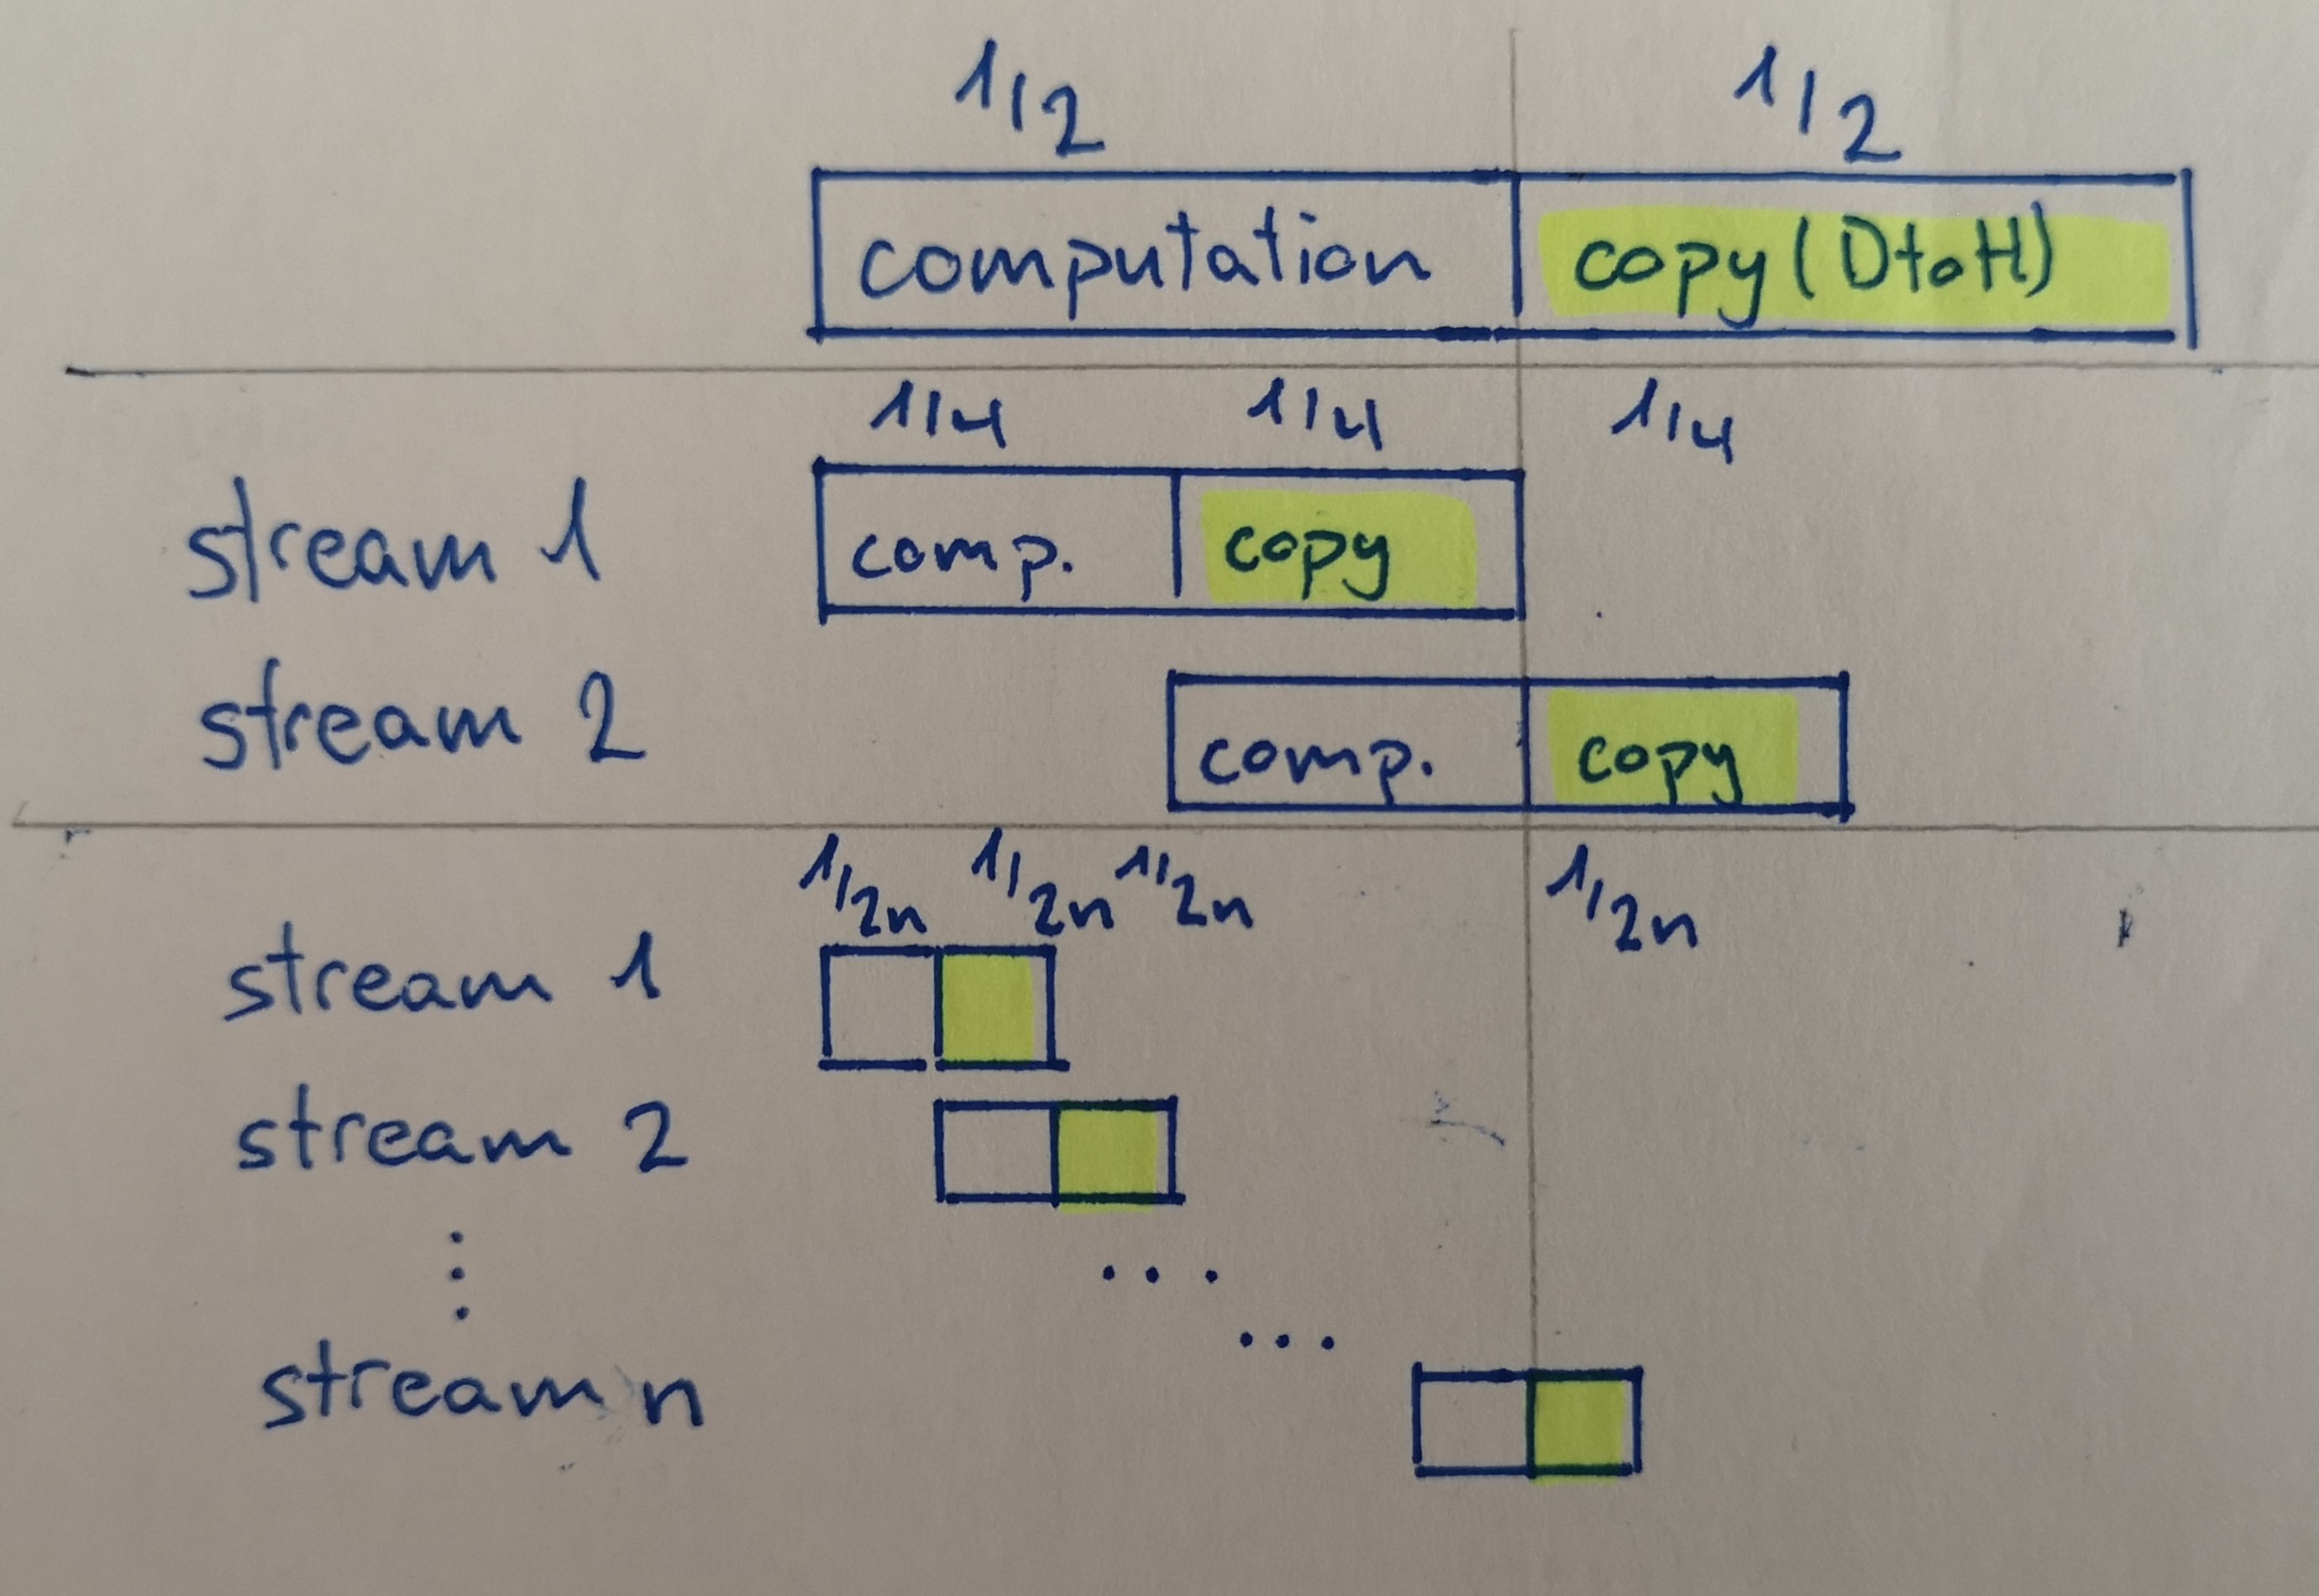 1/2 1/2
computation copy (DtoH)
1/4 1/4 1/4
stream 1 comp. copy
stream 2 comp. copy
1/2n 1/2n 1/2n 1/2n
stream 1
stream 2
⋮
...
...
stream n